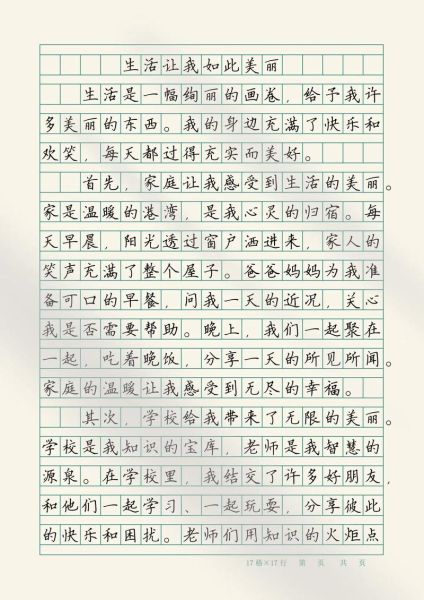 生活让我如此美丽
生活是一幅绚丽的画卷，给予我许
多美丽的东西。我的身边充满了快乐和
欢笑，每天都过得充实而美好。
首先，家庭让我感受到生活的美丽。
家是温暖的港湾，是我心灵的归宿。每
天早晨，阳光透过窗户洒进来，家人的
笑声充满了整个屋子。爸爸妈妈为我准
备可口的早餐，问我一天的近况，关心
我是否需要帮助。晚上，我们一起聚在
一起，吃着晚饭，分享一天的所见所闻。
家庭的温暖让我感受到无尽的幸福。
其次，学校给我带来了无限的美丽。
学校是我知识的宝库，老师是我智慧的
源泉。在学校里，我结交了许多好朋友，
和他们一起学习、一起玩耍，分享彼此
的快乐和困扰。老师们用知识的火炬点
17格×17行 第 页 共 页